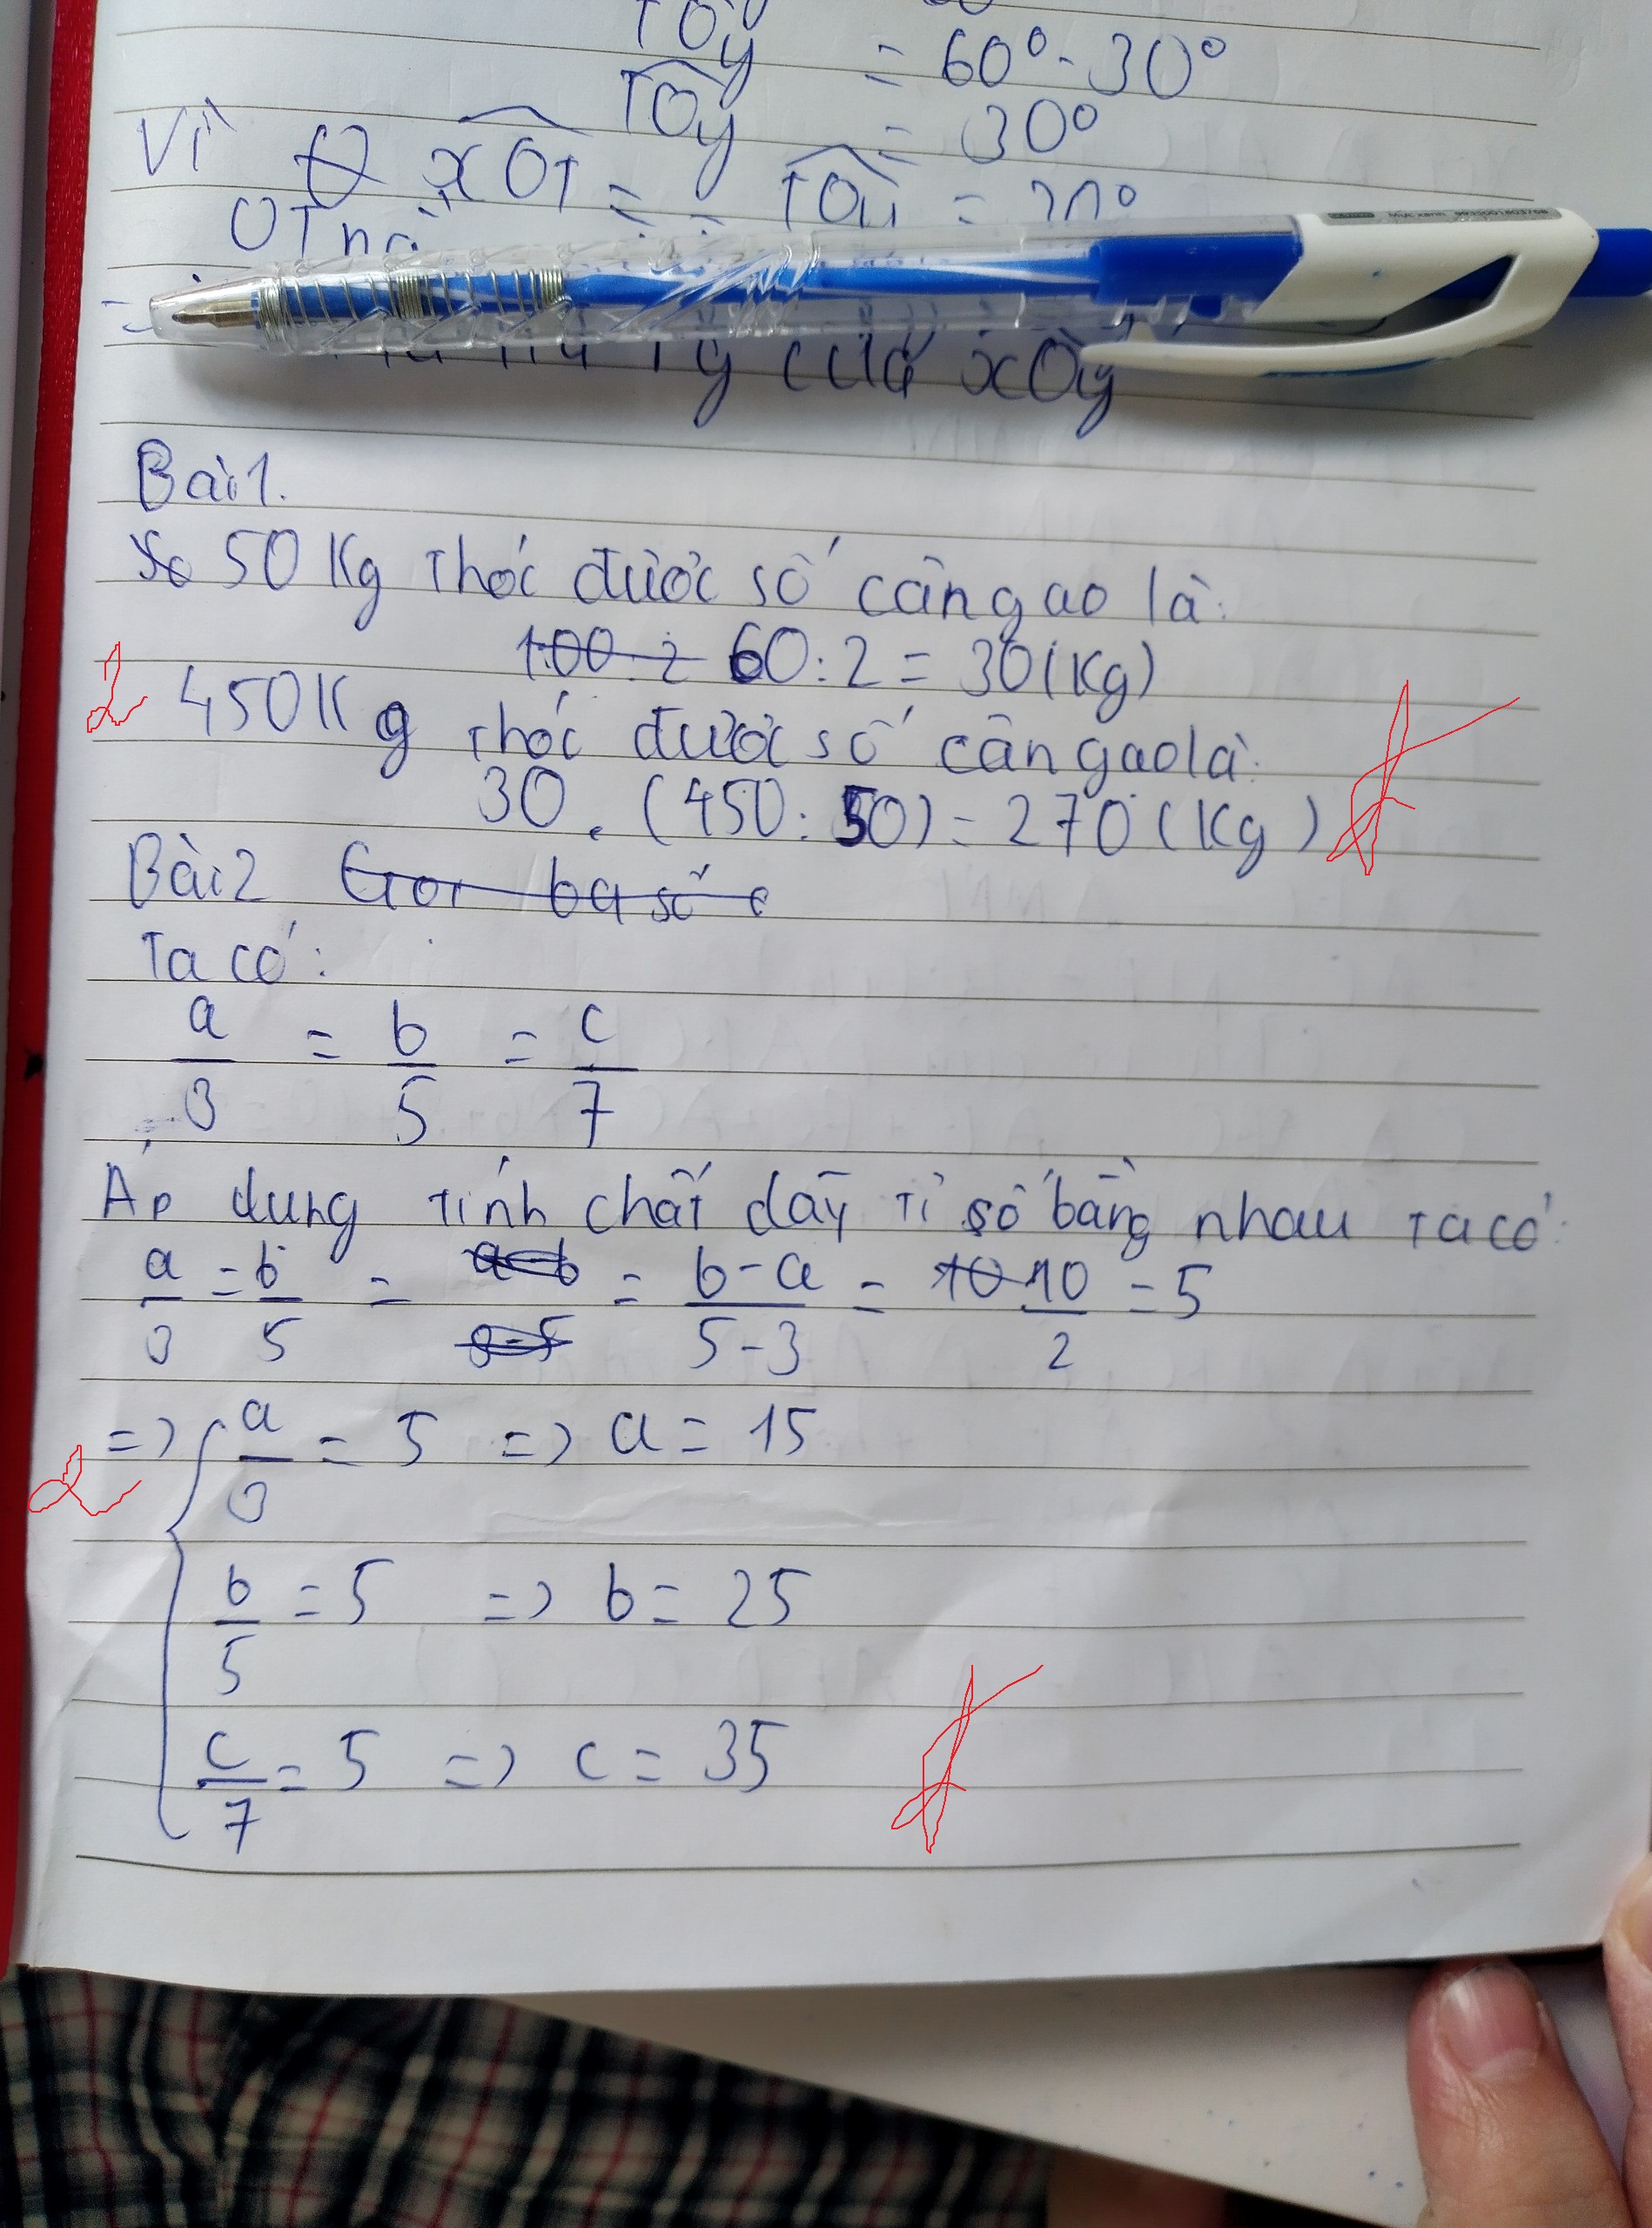 TOy
= 60° - 30°
TOy = 30°
Vì xOT = TOy = 30°
OT
của xOy
Bài 1.
50 Kg thóc được số cân gao là:
100 : 2 60 : 2 = 30 (Kg)
2
450 Kg thóc được số cân gao là:
30 . (450 : 50) = 270 (Kg)
Bài 2 Gọi ba số
Ta có:
a/3 = b/5 = c/7
Áp dung tính chất dãy tỉ số bằng nhau ta có:
a/3 = b/5 = a-b/3-5 = b-a/5-3 = 10 10/2 = 5
=> a/3 = 5 => a = 15
2
b/5 = 5 => b = 25
c/7 = 5 => c = 35